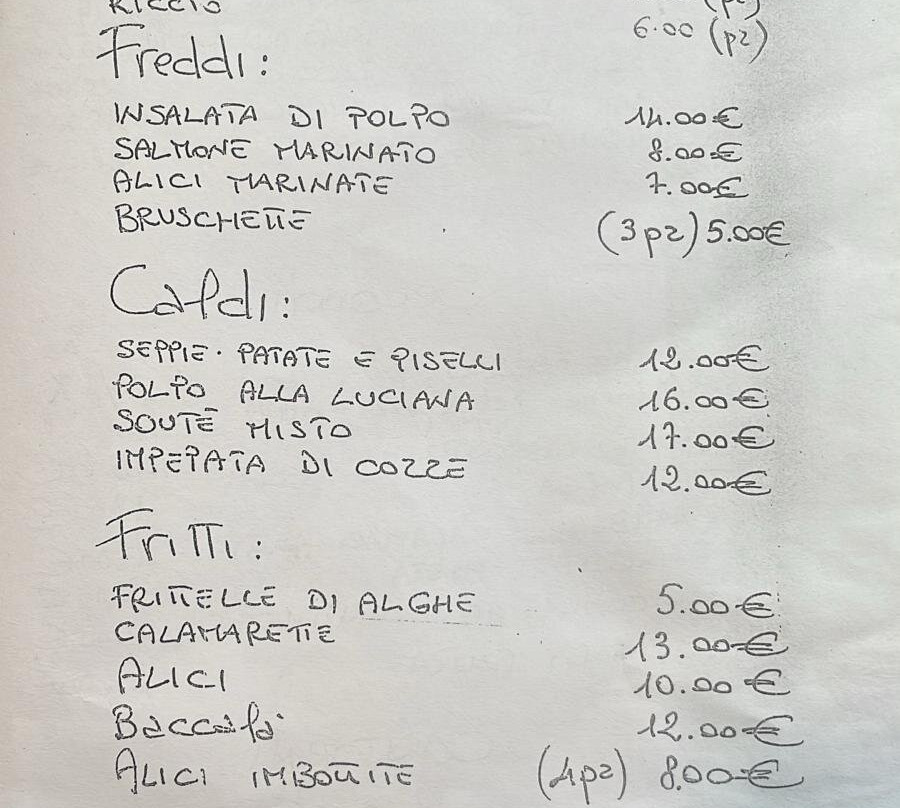 RICCIO 6.00 (pz)
Freddi:
INSALATA DI POLPO 14.00€
SALMONE MARINATO 8.00€
ALICI MARINATE 7.00€
BRUSCHETTE (3pz) 5.00€
Caldi:
SEPPIE. PATATE E PISELLI 12.00€
POLPO ALLA LUCIANA 16.00€
SOUTÈ MISTO 17.00€
IMPEPATA DI COZZE 12.00€
Fritti:
FRITTELLE DI ALGHE 5.00€
CALAMARETTE 13.00€
ALICI 10.00€
Baccalà 12.00€
ALICI IMBOTTITE (4pz) 8.00€